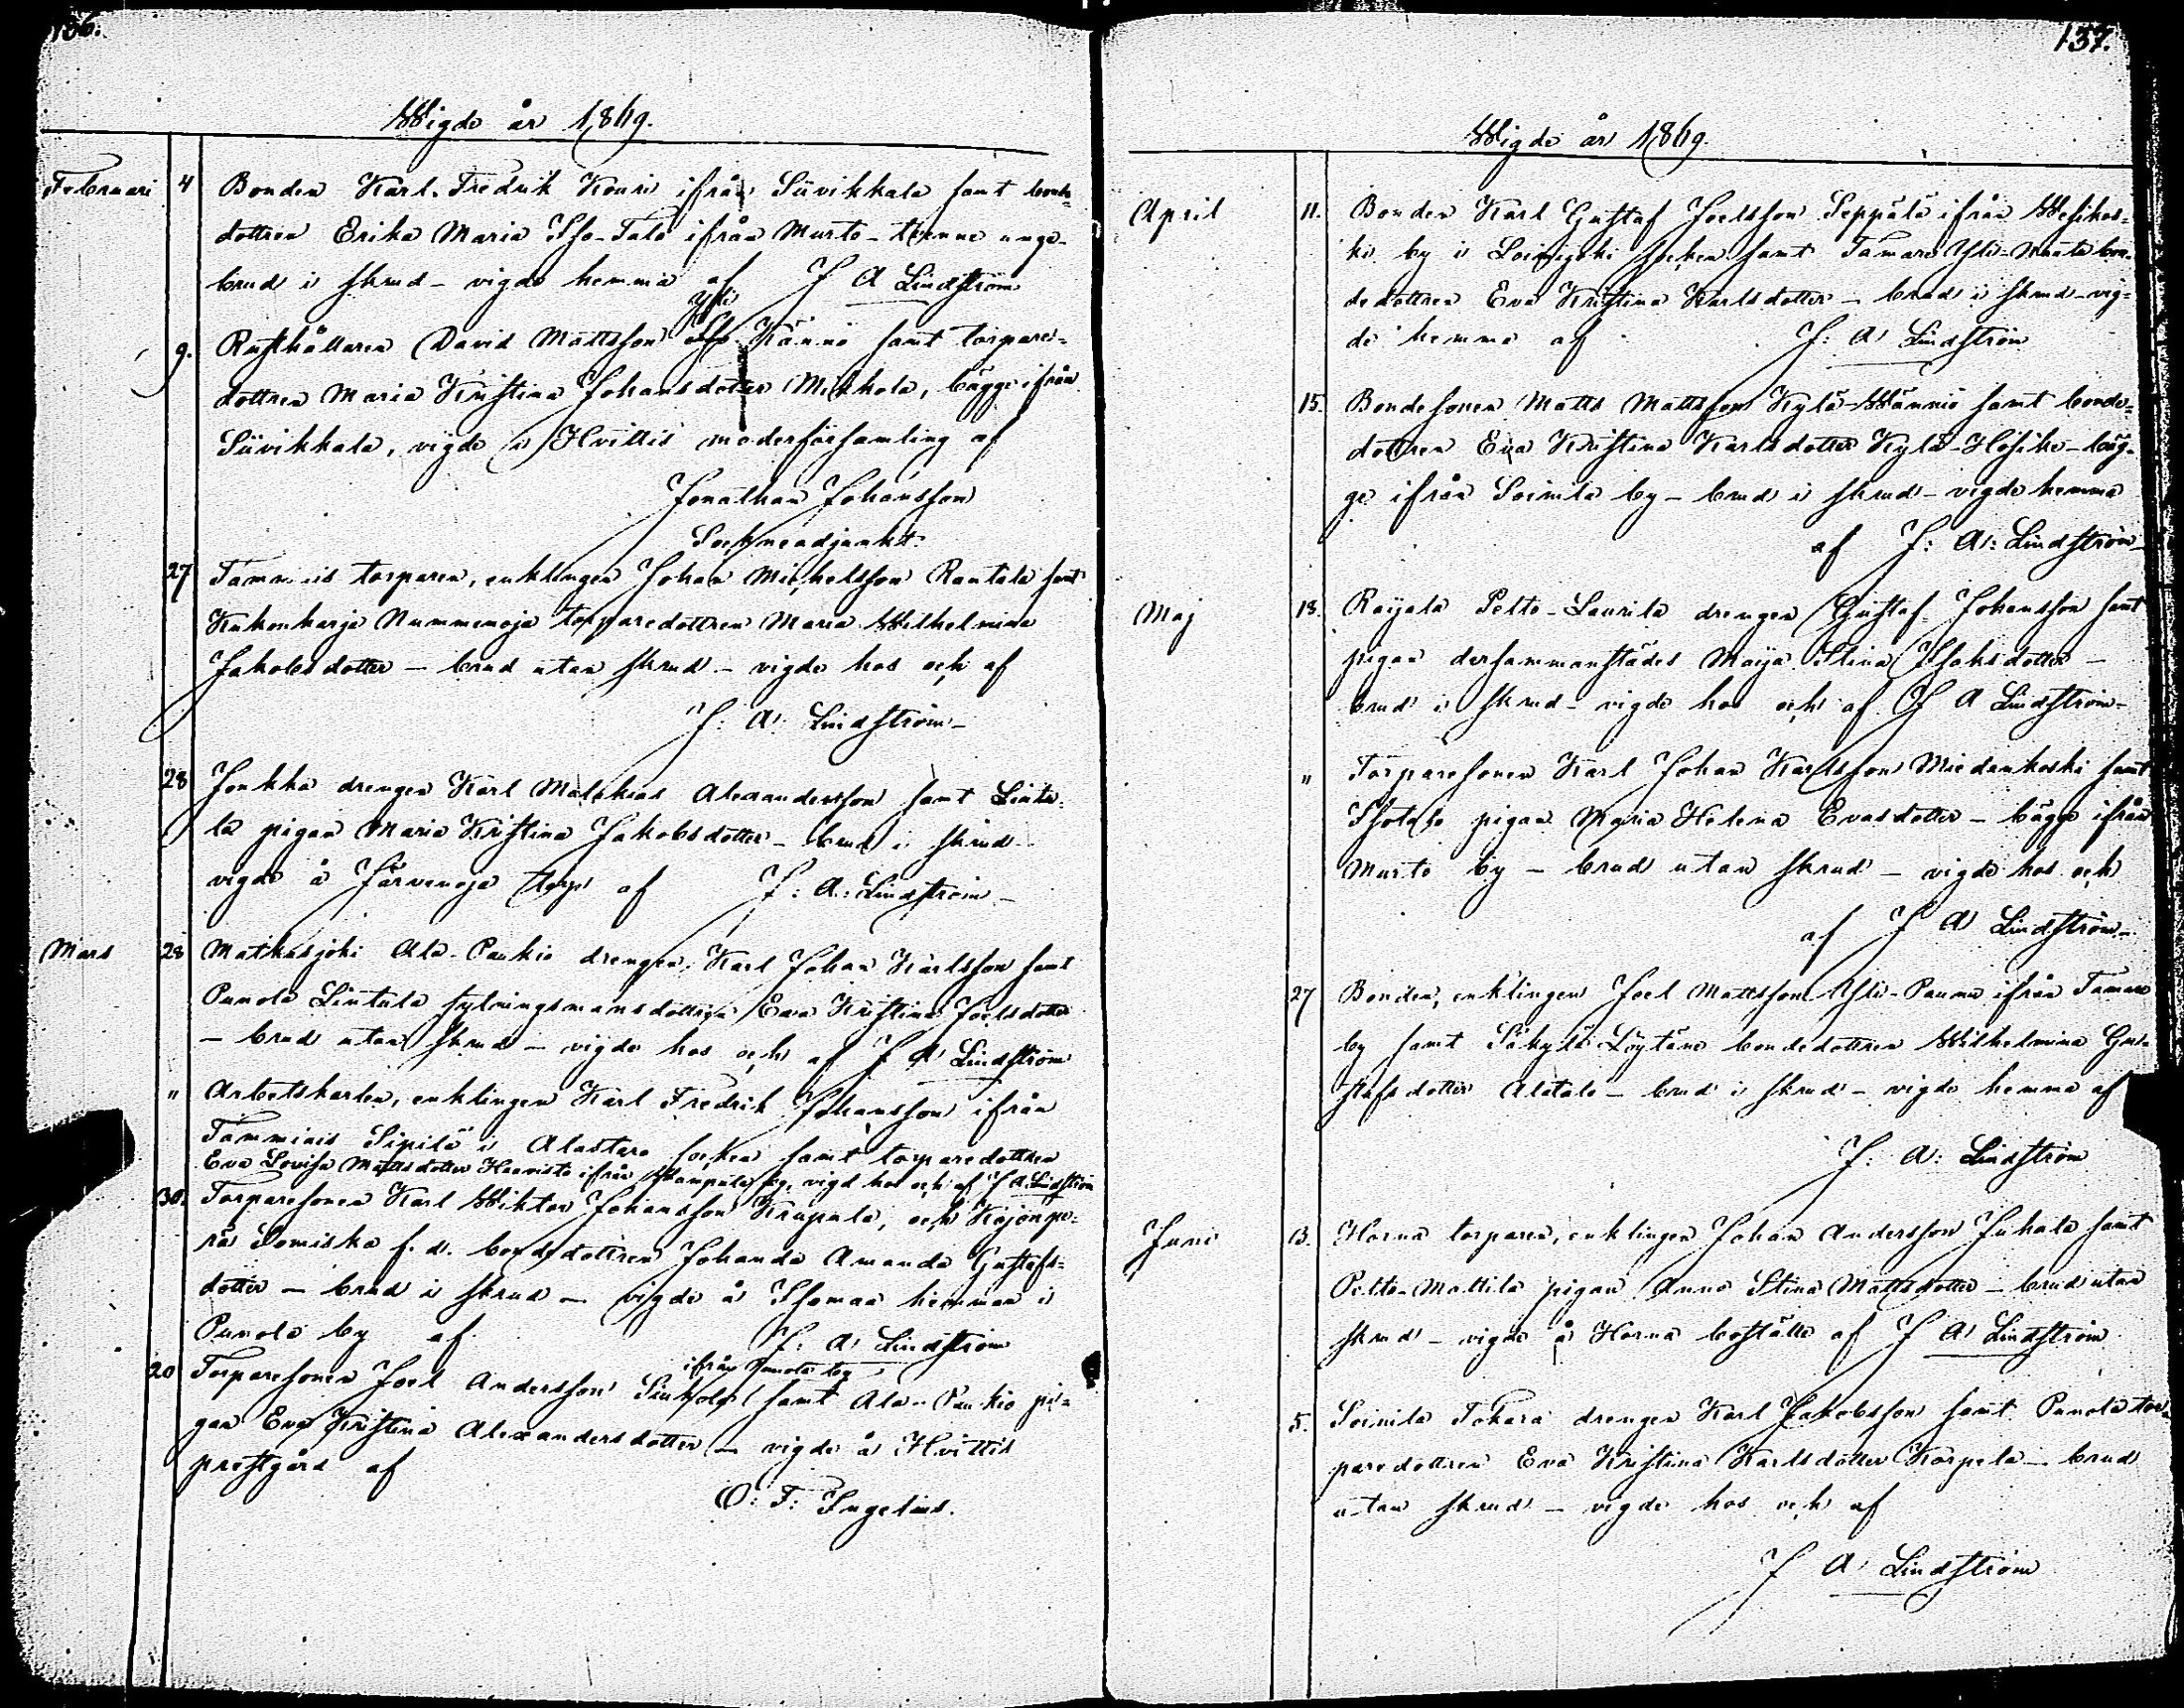 136.
Wigde år 1869.
Februari 4 Bonden Karl Fredrik Kouri ifrån Siivikkala samt bonde-
dottren Erika Maria Iso-Talo ifrån Murto - unga -
brud i skrud - vigde hemma af J A Lindström
Yli
9. Rusthållaren David Mattsson Kännö samt torpare-
dottren Maria Kristina Johansdotter Mikkola, bägge ifrån
Siivikkala, vigde i Hvittis moderförsamling af
Jonathan Johansson
Sockneadjunkt.
27 Tammiais torparen, enklingen Johan Michelsson Rantala samt
Kukonharja Nummenoja torparedottren Maria Wilhelmina
Jakobsdotter - brud utan skrud - vigde hos och af
J: A: Lindström -
28 Jonkka drengen Karl Malakias Alexandersson samt Lintu-
la pigan Maria Kristina Jakobsdotter - brud i skrud -
vigde å Järvenoja torp af J: A: Lindström -
Mars 28 Matkusjoki Ala-Paukio drengen, Karl Johan Karlsson samt
Punola Lintula sytningsmansdottren Eva Kristina Joelsdotter
- brud utan skrud - vigde hos och af J A Lindström
" Arbetskarlen, enklingen Karl Fredrik Johansson ifrån
Tammiais Sipilä i Alastaro socken samt torparedottren
Eva Lovisa Mattsdotter Haavisto ifrån by, vigd hos och af J A Lindström
30. Torparesonen Karl Wiktor Johansson Krapula, och Kojonpe-
rä Lomiska f. d. bondedottren Johanda Amanda Gustafs-
dotter - brud i skrud - vigde å Isomaa hemman i
Punola by af J: A: Lindström
ifrån Punola by
20 Torparesonen Joel Andersson samt Ala-Paukio pi-
gan Eva Kristina Alexandersdotter - vigde å Hvittis
prestgård af
O: F: Ingelius.
137.
Wigde år 1869.
April 11. Bonden Karl Gustaf Joelsson Seppälä ifrån Wesikos-
ki by i Loimijoki socken samt Tamare Yli-Knaata bon-
dedottren Eva Kristina Karlsdotter - brud i skrud - vig-
de hemma af J: A: Lindström
15. Bondesonen Matts Mattsson Kylä-Wännio samt bonde-
dottren Eva Kristina Karlsdotter Kylä-Hösike - bäg-
ge ifrån Soinila by - brud i skrud - vigde hemma
af J: A: Lindström -
Maj 18. Raijala Pelto-Laurila drengen Gustaf Johansson samt
pigan dersammanstädes Maija Stina Isaksdotter -
brud i skrud - vigde hos och af J A Lindström -
" Torparesonen Karl Johan Karlsson Miedankoski samt
Isotalo pigan Maria Helena Evasdotter - bägge ifrån
Murto by - brud utan skrud - vigde hos och
af J A Lindström -
27 Bonden, enklingen Joel Mattsson Yli-Paunu ifrån Tamare
by samt Säkylä Löytäne bondedottren Wilhelmina Gu-
stafsdotter Alatalo - brud i skrud - vigde hemma af
J: A: Lindström
Juni 3. Horna torparen, enklingen Johan Andersson Juhala samt
Pelto-Mattila pigan Anna Stina Mattsdotter - brud utan
skrud - vigde å Horna boställe af J A Lindström
5. Soinila Tokara drengen Karl Jakobsson samt Punola tor-
paredottren Eva Kristina Karlsdotter Korpela - brud
utan skrud - vigde hos och af
J A Lindström